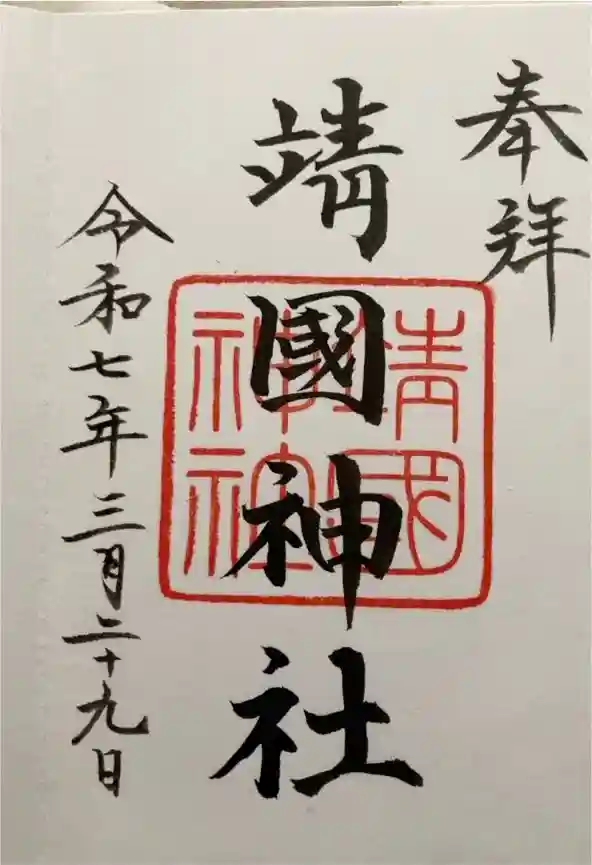 奉拜
靖國神社
靖國
神社
令和七年三月二十九日